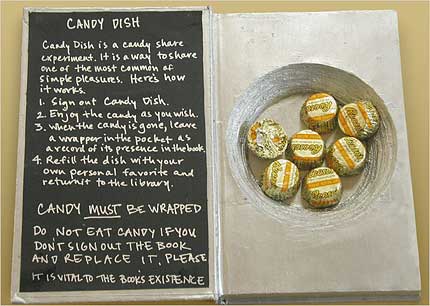 CANDY DISH
Candy Dish is a candy share
experiment. It is a way to share
one of the most common of
simple pleasures. Here's how
it works.
1. Sign out Candy Dish.
2. Enjoy the candy as you wish.
3. When the candy is gone, leave
a wrapper in the pocket as
a record of its presence in the book.
4. Refill the dish with your
own personal favorite and
return to the library.
CANDY MUST BE WRAPPED
DO NOT EAT CANDY IF YOU
DON'T SIGN OUT THE BOOK
AND REPLACE IT, PLEASE
IT IS VITAL TO THE BOOK'S EXISTENCE